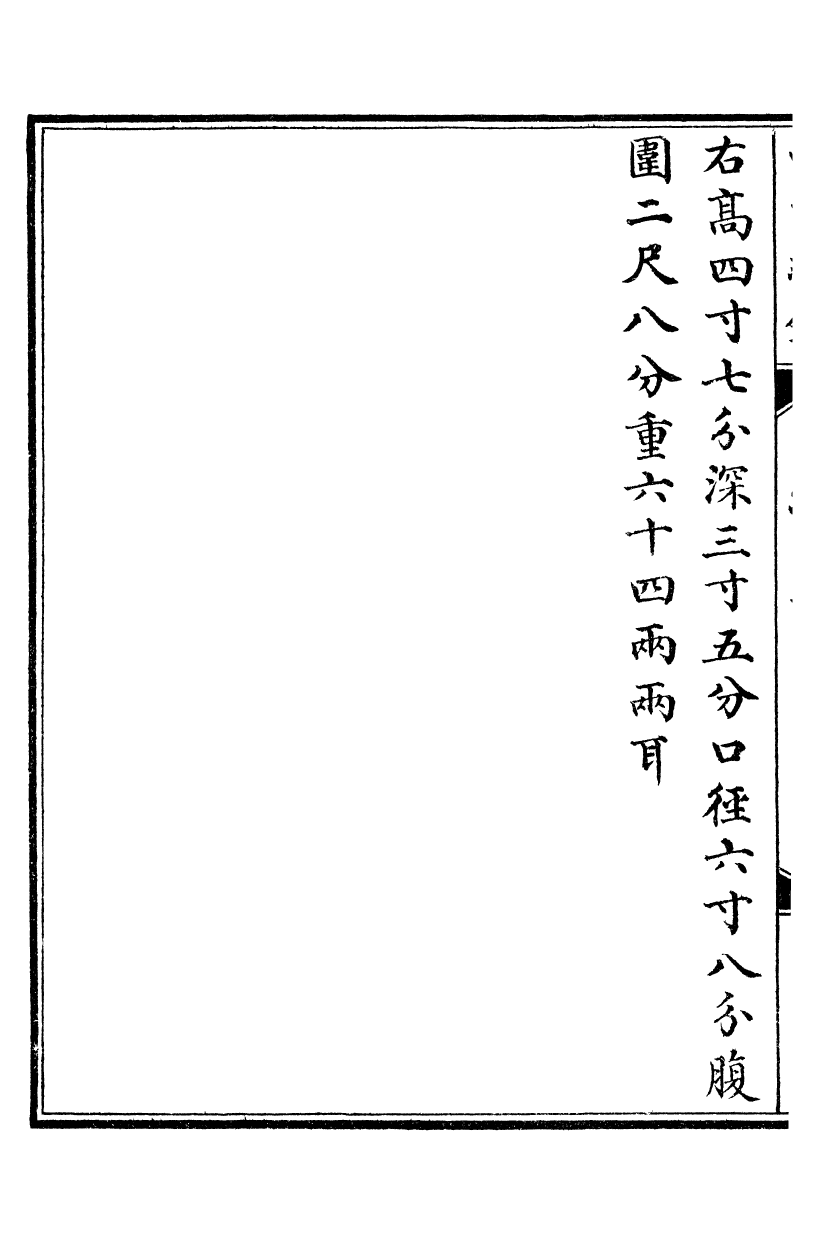 右髙四寸七分深三寸五分口徑六寸八分腹
圍二尺八分重六十四兩兩耳